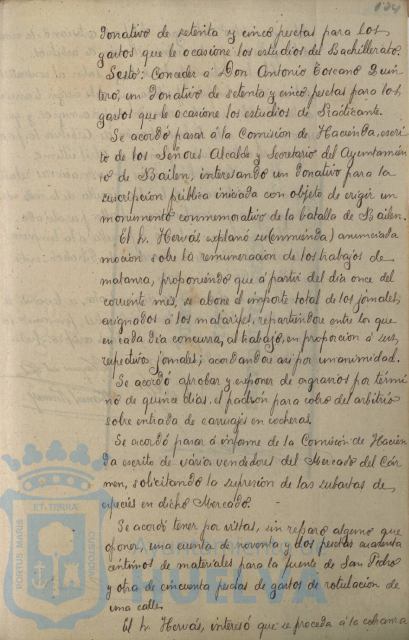 134
Donativo de setenta y cinco pesetas para los
gastos que le ocasione los estudios del Bachillerato.
Sesto: Conceder á Don Antonio Toscano Quin-
tero, un Donativo de setenta y cinco pesetas para los
gastos que le ocasione los estudios de Practicante.
Se acordó pasar á la Comisión de Hacienda, escri-
to de los Señores Alcalde y Secretario del Ayuntamien-
to de Bailen, interesando un donativo para la
suscripción pública iniciada con objeto de erigir un
monumento conmemorativo de la batalla de Bailen.
El Sr. Hervás explanó su (enmienda) anunciada
moción sobre la remuneración de los trabajos de
matanza, proponiendo que á partir del dia once del
corriente mes, se abone el importe total de los jornales
asignados á los matarifes, repartiendose entre los que
en cada dia concurran, al trabajo, en proporción á sus
respectivos jornales; acordandose asi por unanimidad.
Se acordó aprobar y esponer de agravios por térmi-
no de quince dias, el padrón para cobro del arbitrio
sobre entrada de carruajes en cocheras.
Se acordó pasar á informe de la Comisión de Hacien-
da escrito de varios vendedores del Mercado del Cár-
men, solicitando la supresión de las subastas de
especies en dicho Mercado.
Se acordó tener por vistas, sin reparo alguno que
oponer, una cuenta de noventa y dos pesetas cuarenta
centimos de materiales para la fuente de San Pedro
y otra de cincuenta pesetas de gastos de rotulación de
una calle.
El Sr. Hervás, interesó que se proceda á la cobranza
PORTUS MARIS ET TERRÆ CUSTODIA
HUELVA